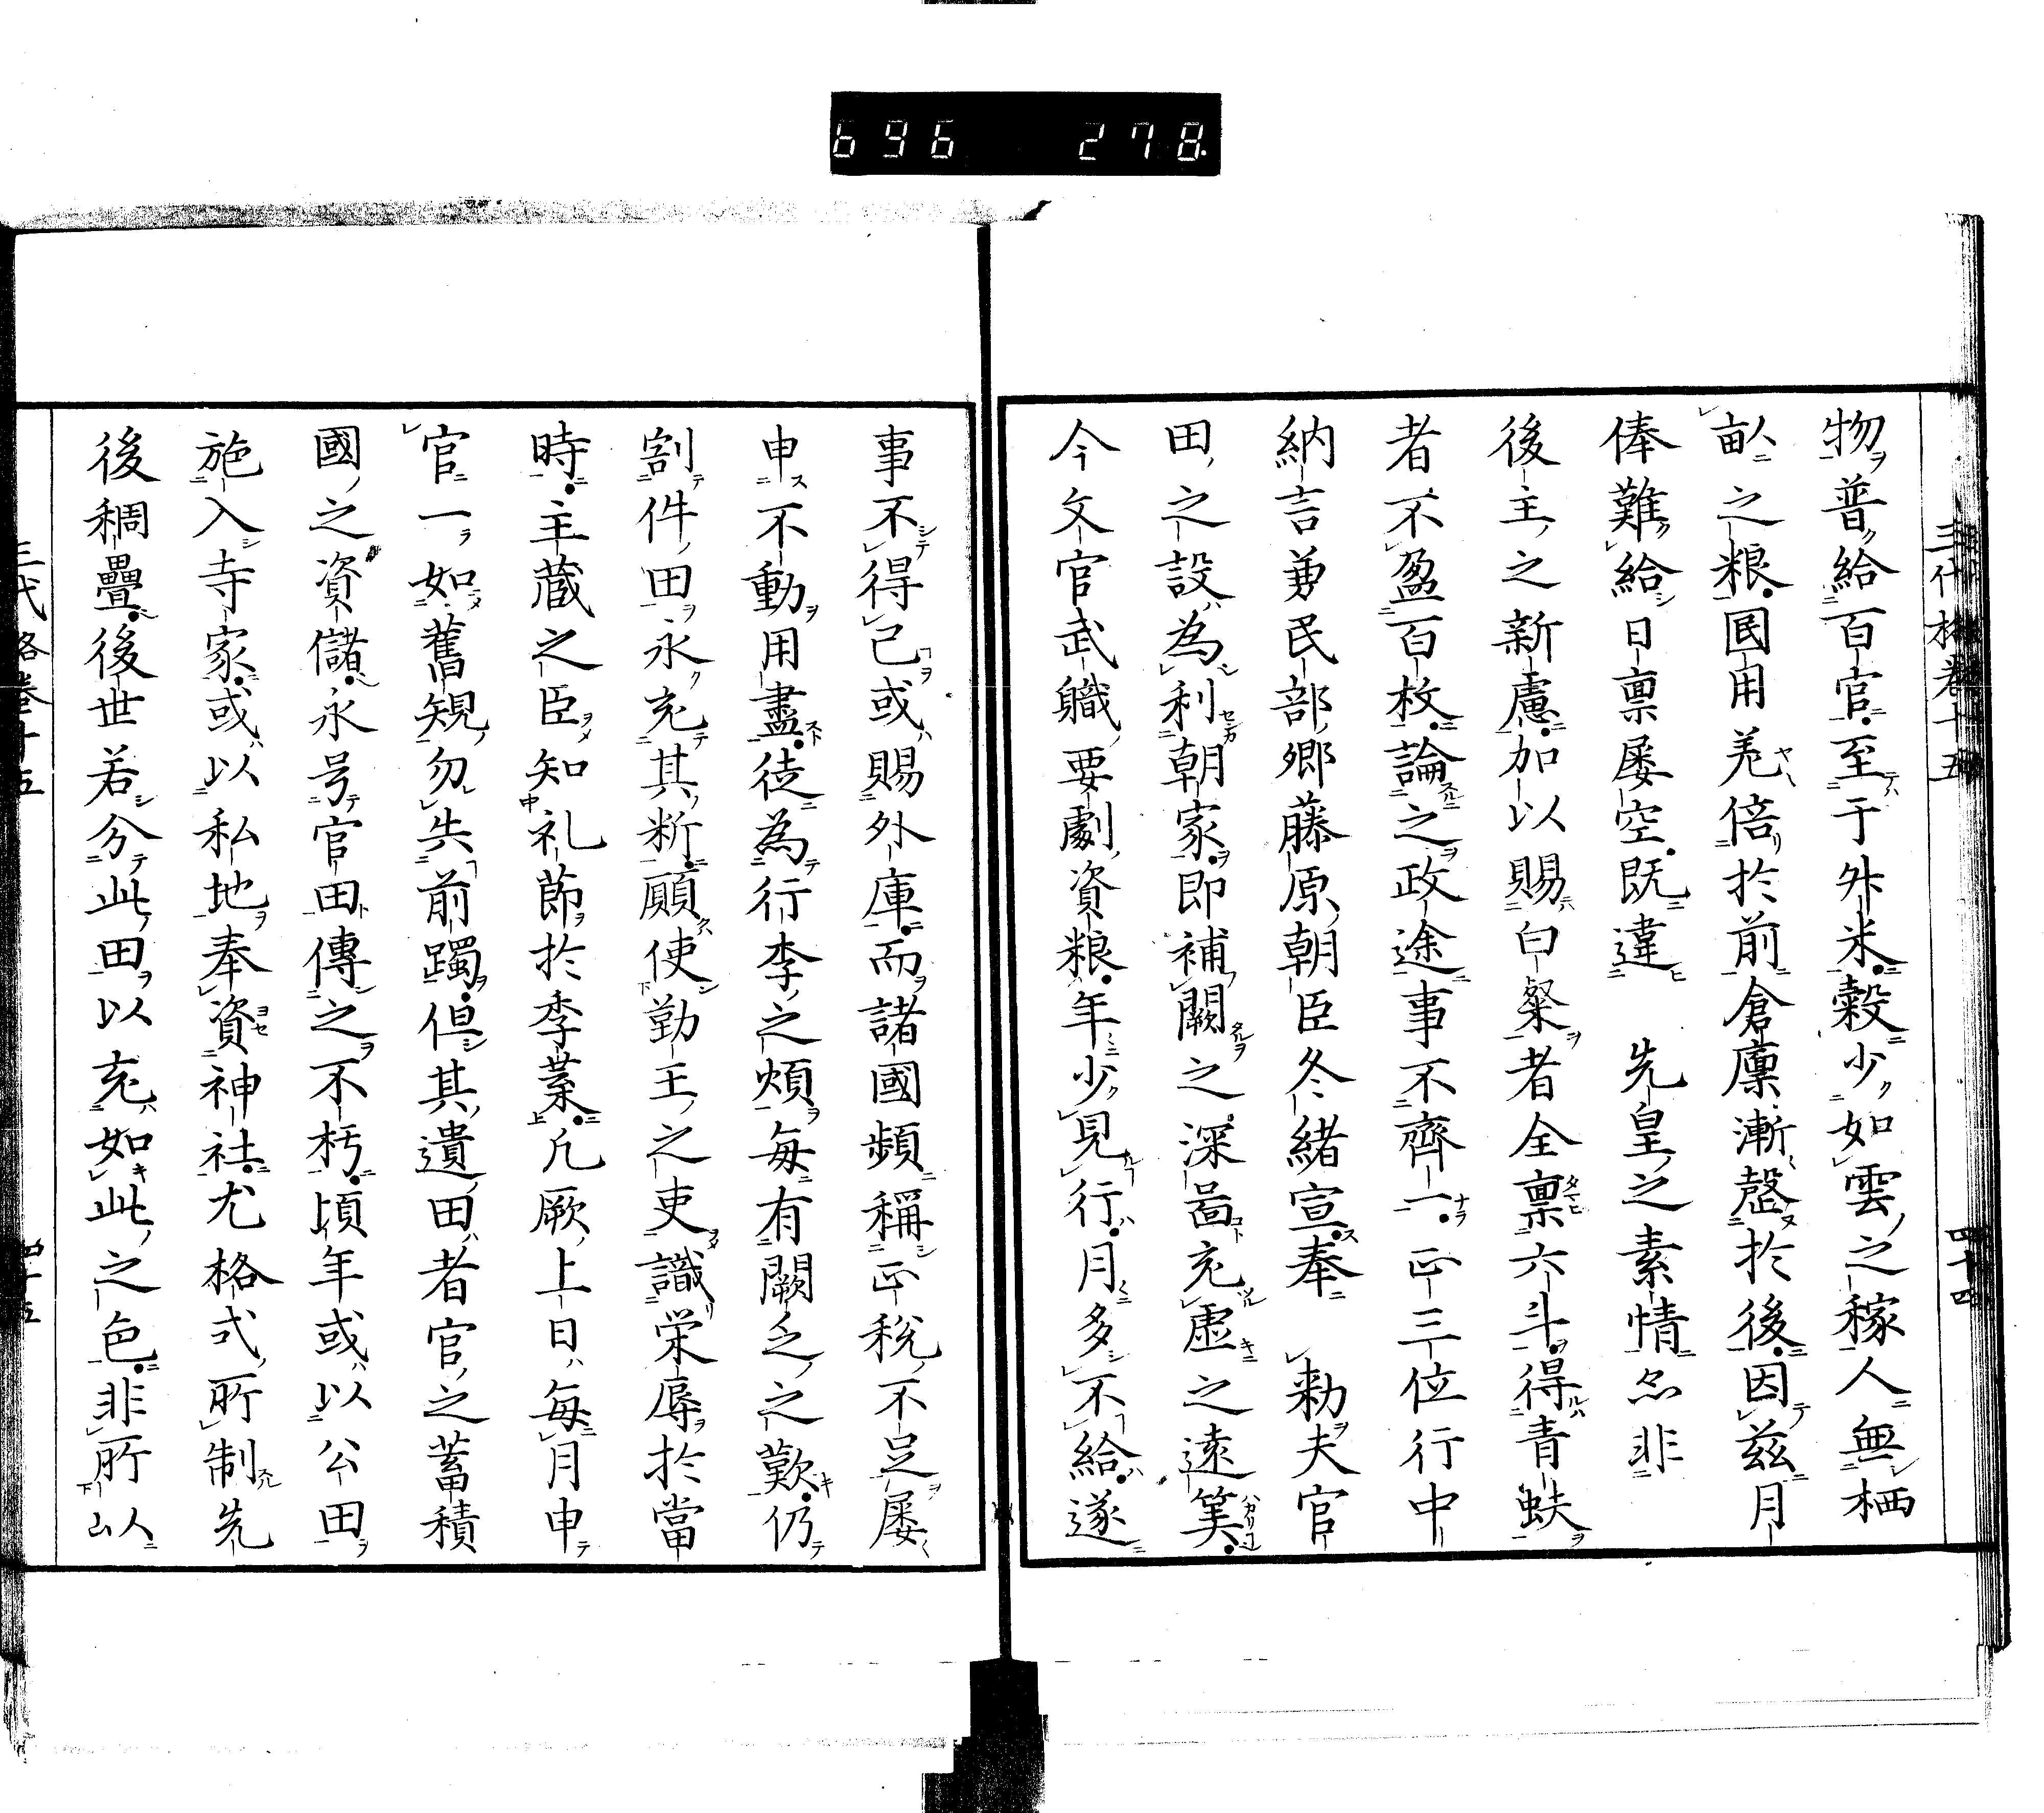 696 278
三代格卷十五 四十四
物普給百官至于外米穀少如雲之稼人無栖
畝之粮國用羌倍於前倉廩漸罄於後因茲月
俸難給日稟屡空既違 先皇之素情亦非
後主之新慮加以賜白粲者全稟六斗得青蚨
者不盈百枚論之政途事不齊一正三位行中
納言兼民部卿藤原朝臣冬緒宣奉 勅夫官
田之設為利朝家即補闕之深啚充虚之遠筭
今文官武職要劇資粮年少見行月多不給遂
事不得已或賜外庫而諸國頻稱正税不足屡
申不動用盡徒為行李之煩毎有闕乏之歎仍
割件田永充其新願使勤王之吏識栄辱於當
時主蔵之臣知礼節於季葉凡厥上日毎月申
官一如舊䂓勿失前躅但其遺田者官之蓄積
國之資儲永号官田傳之不朽頃年或以公田
施入寺家或以私地奉資神社尤格式所制先
後稠疊後世若分此田以充如此之色非所以
三代格卷十五 四十五